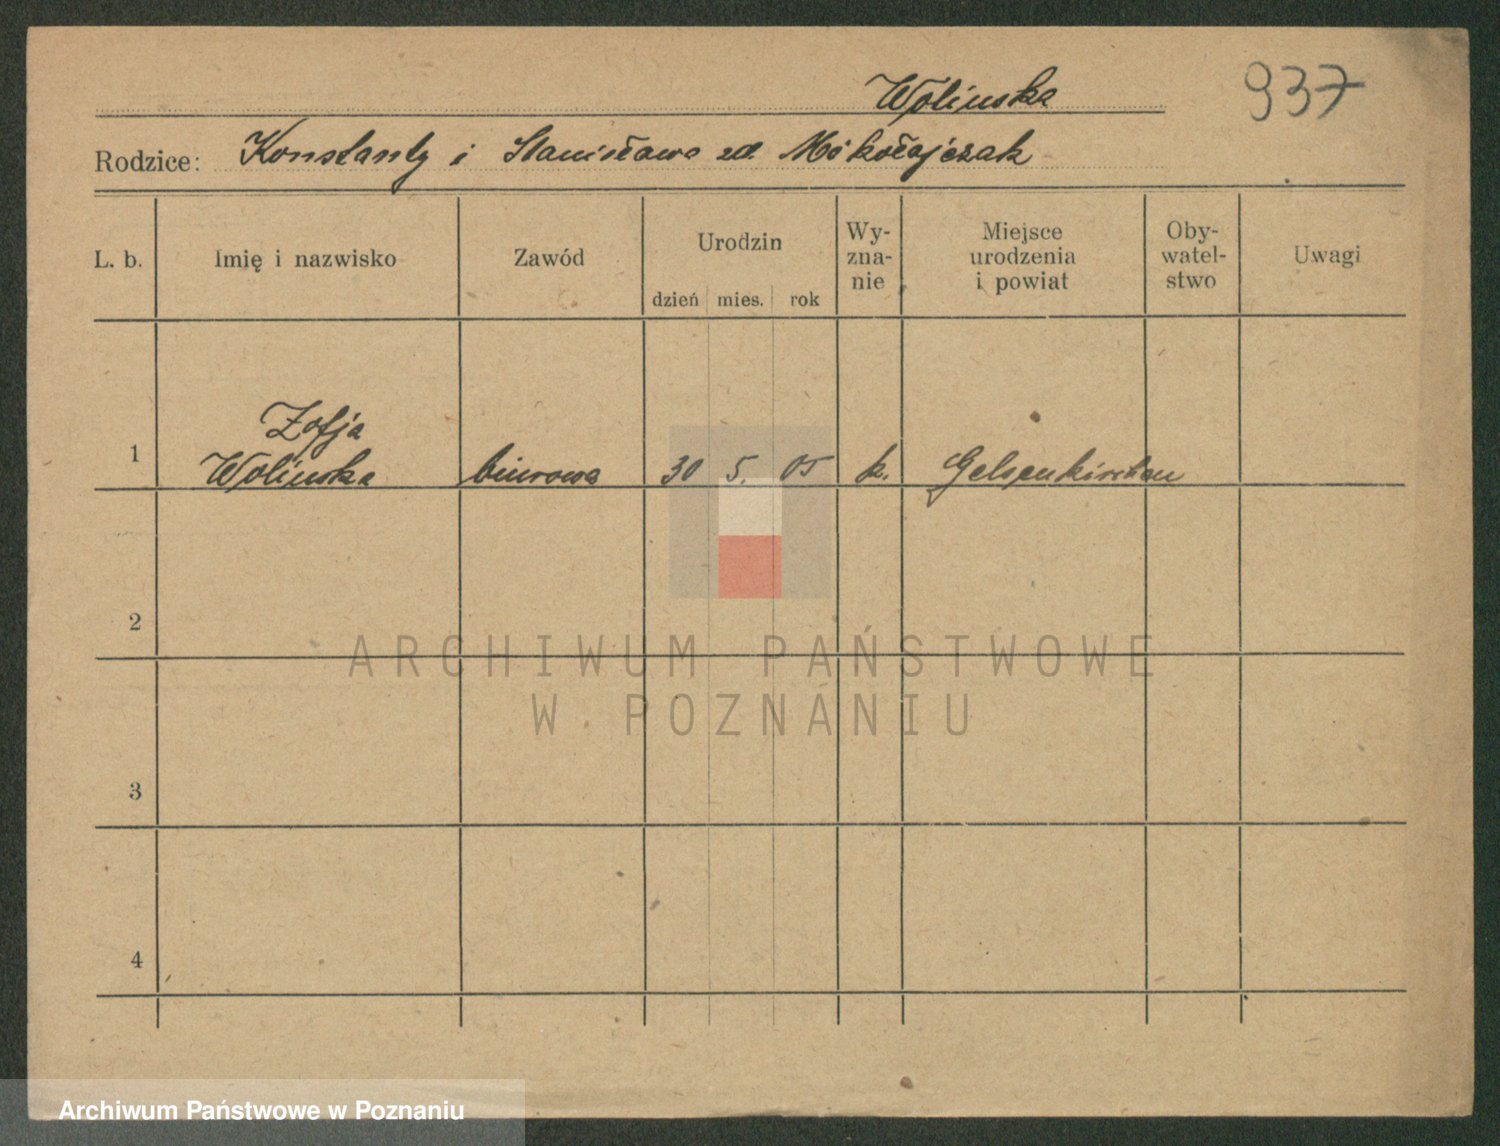 Wolinska 937
Rodzice: Konstanty i Stanisława zd. Mikołajczak
L. b. Imię i nazwisko Zawód Urodzin dzień mies. rok Wy-
zna-
nie Miejsce
urodzenia
i powiat Oby-
watel-
stwo Uwagi
Zofja
1 Wolinska biurowa 30 5. 05 k. Gelsenkirchen
2
3
4
ARCHIWUM PAŃSTWOWE
W POZNANIU
Archiwum Państwowe w Poznaniu